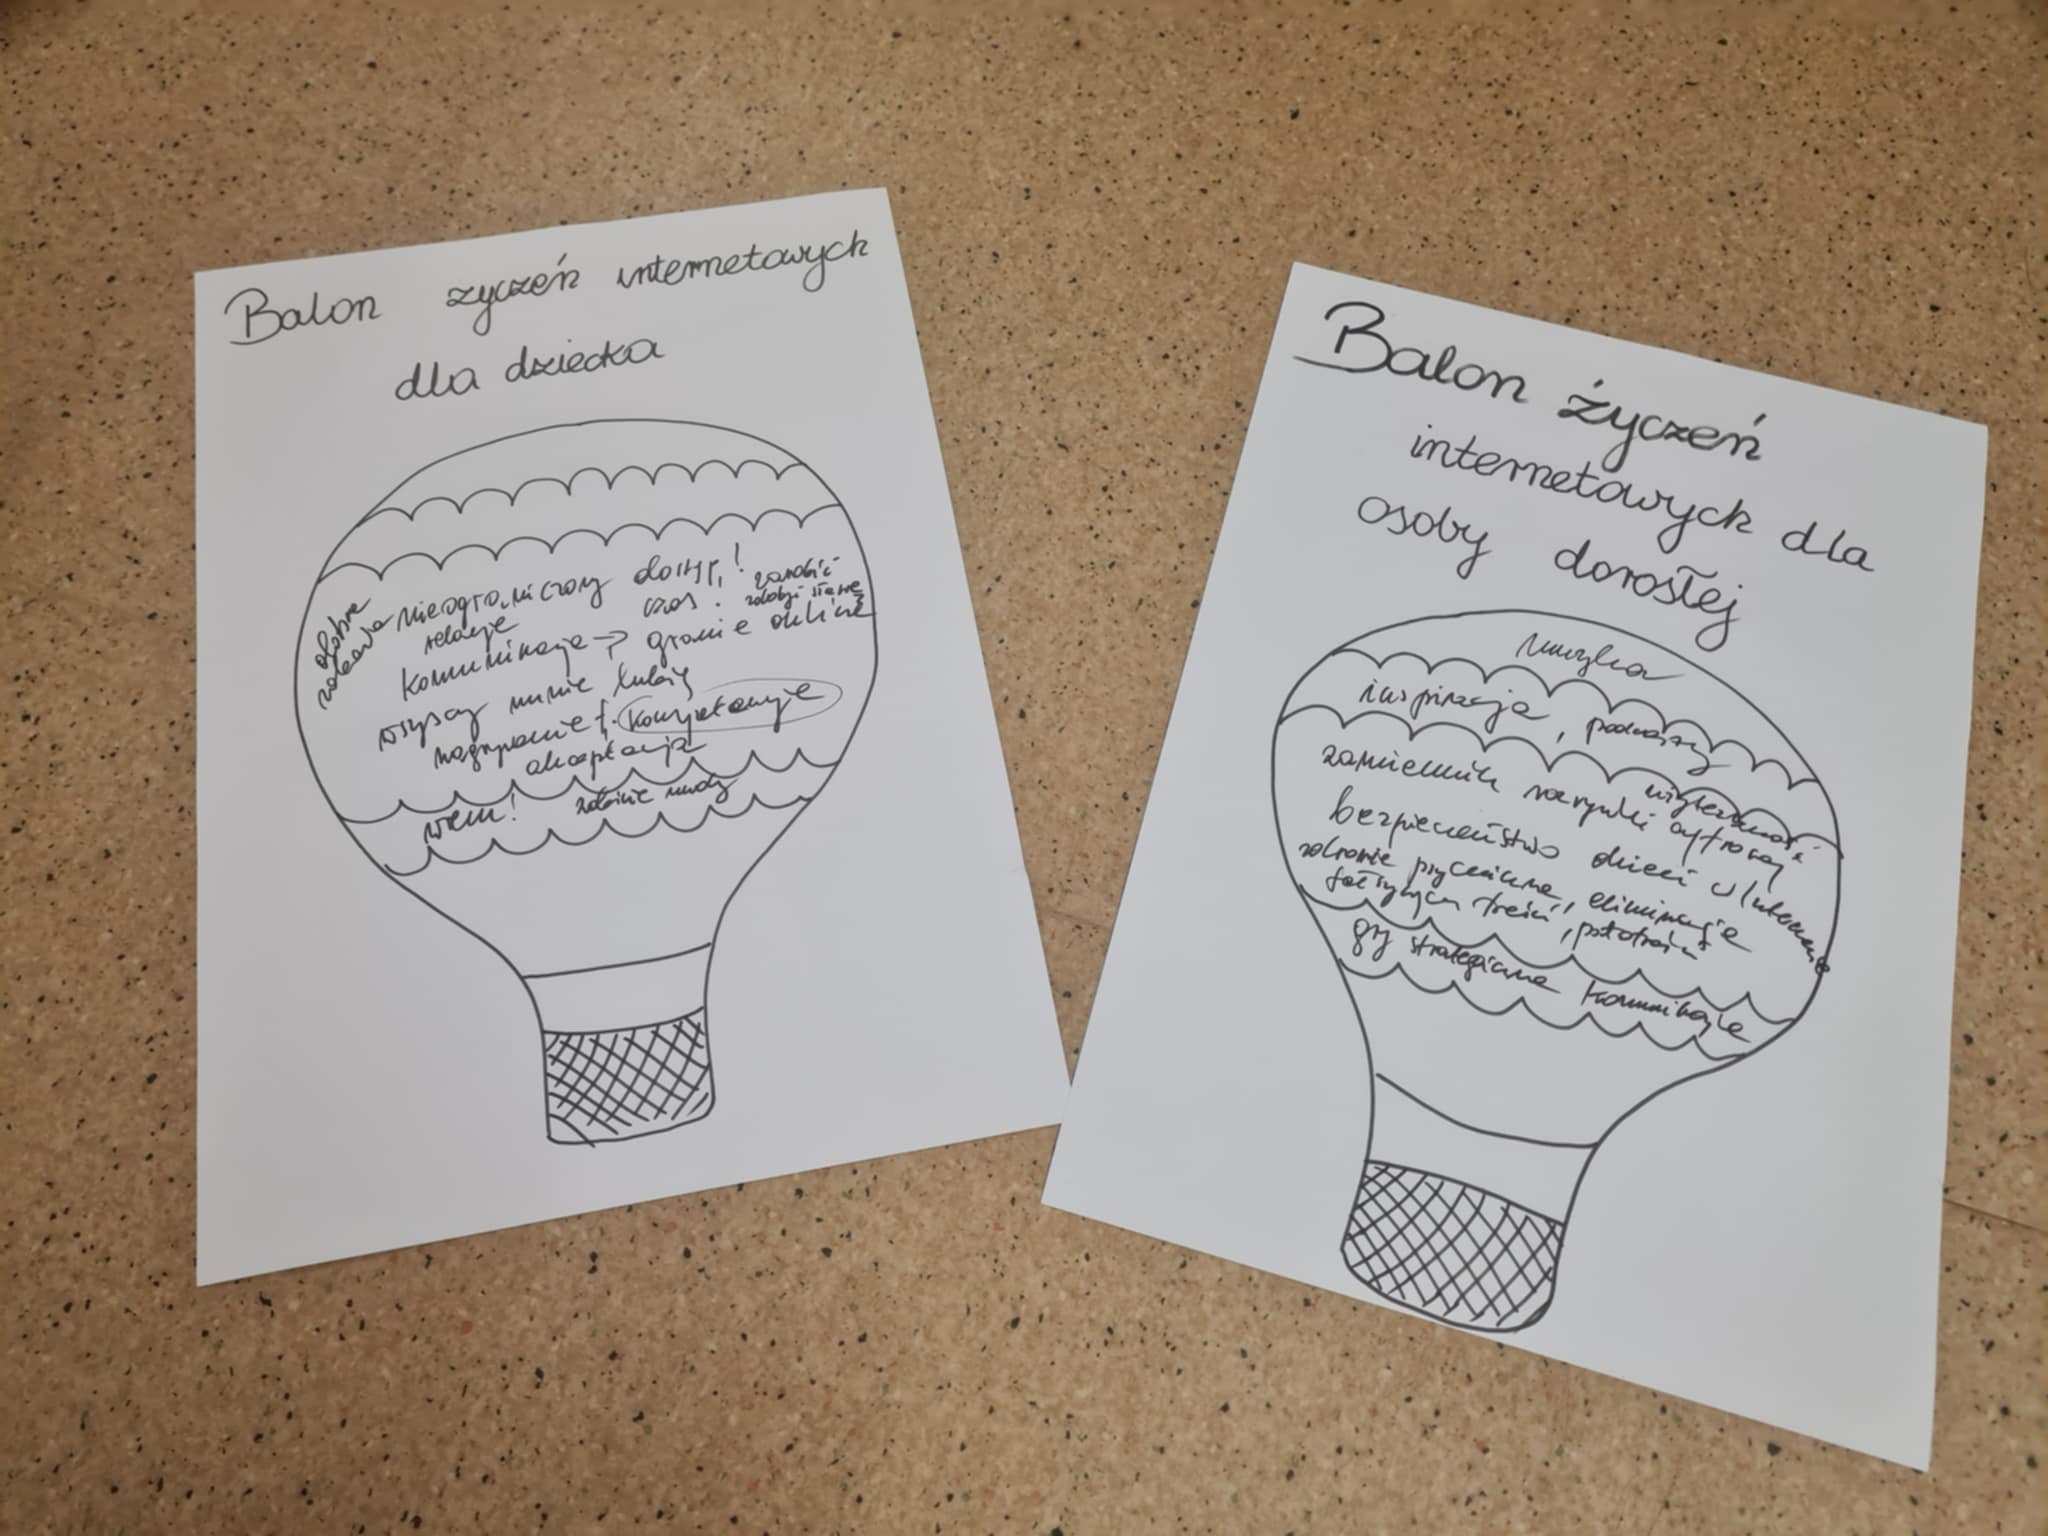 Balon życzeń internetowych
dla dziecka
dobra
zabawa
nieograniczony dostęp!
czas!
zarobić
zdobyć sławę
relacje
komunikacja → granie online
wszyscy mnie lubią
nagrywanie
akceptacja
wiem!
zabicie nudy
Balon życzeń
internetowych dla
osoby dorosłej
muzyka
inspiracja, podcasty
zamiennik rozrywki cyfrowej
bezpieczeństwo dzieci w Internecie
zdrowie psychiczne, eliminacja
fałszywych treści, patotreści
gry strategiczne komunikacja